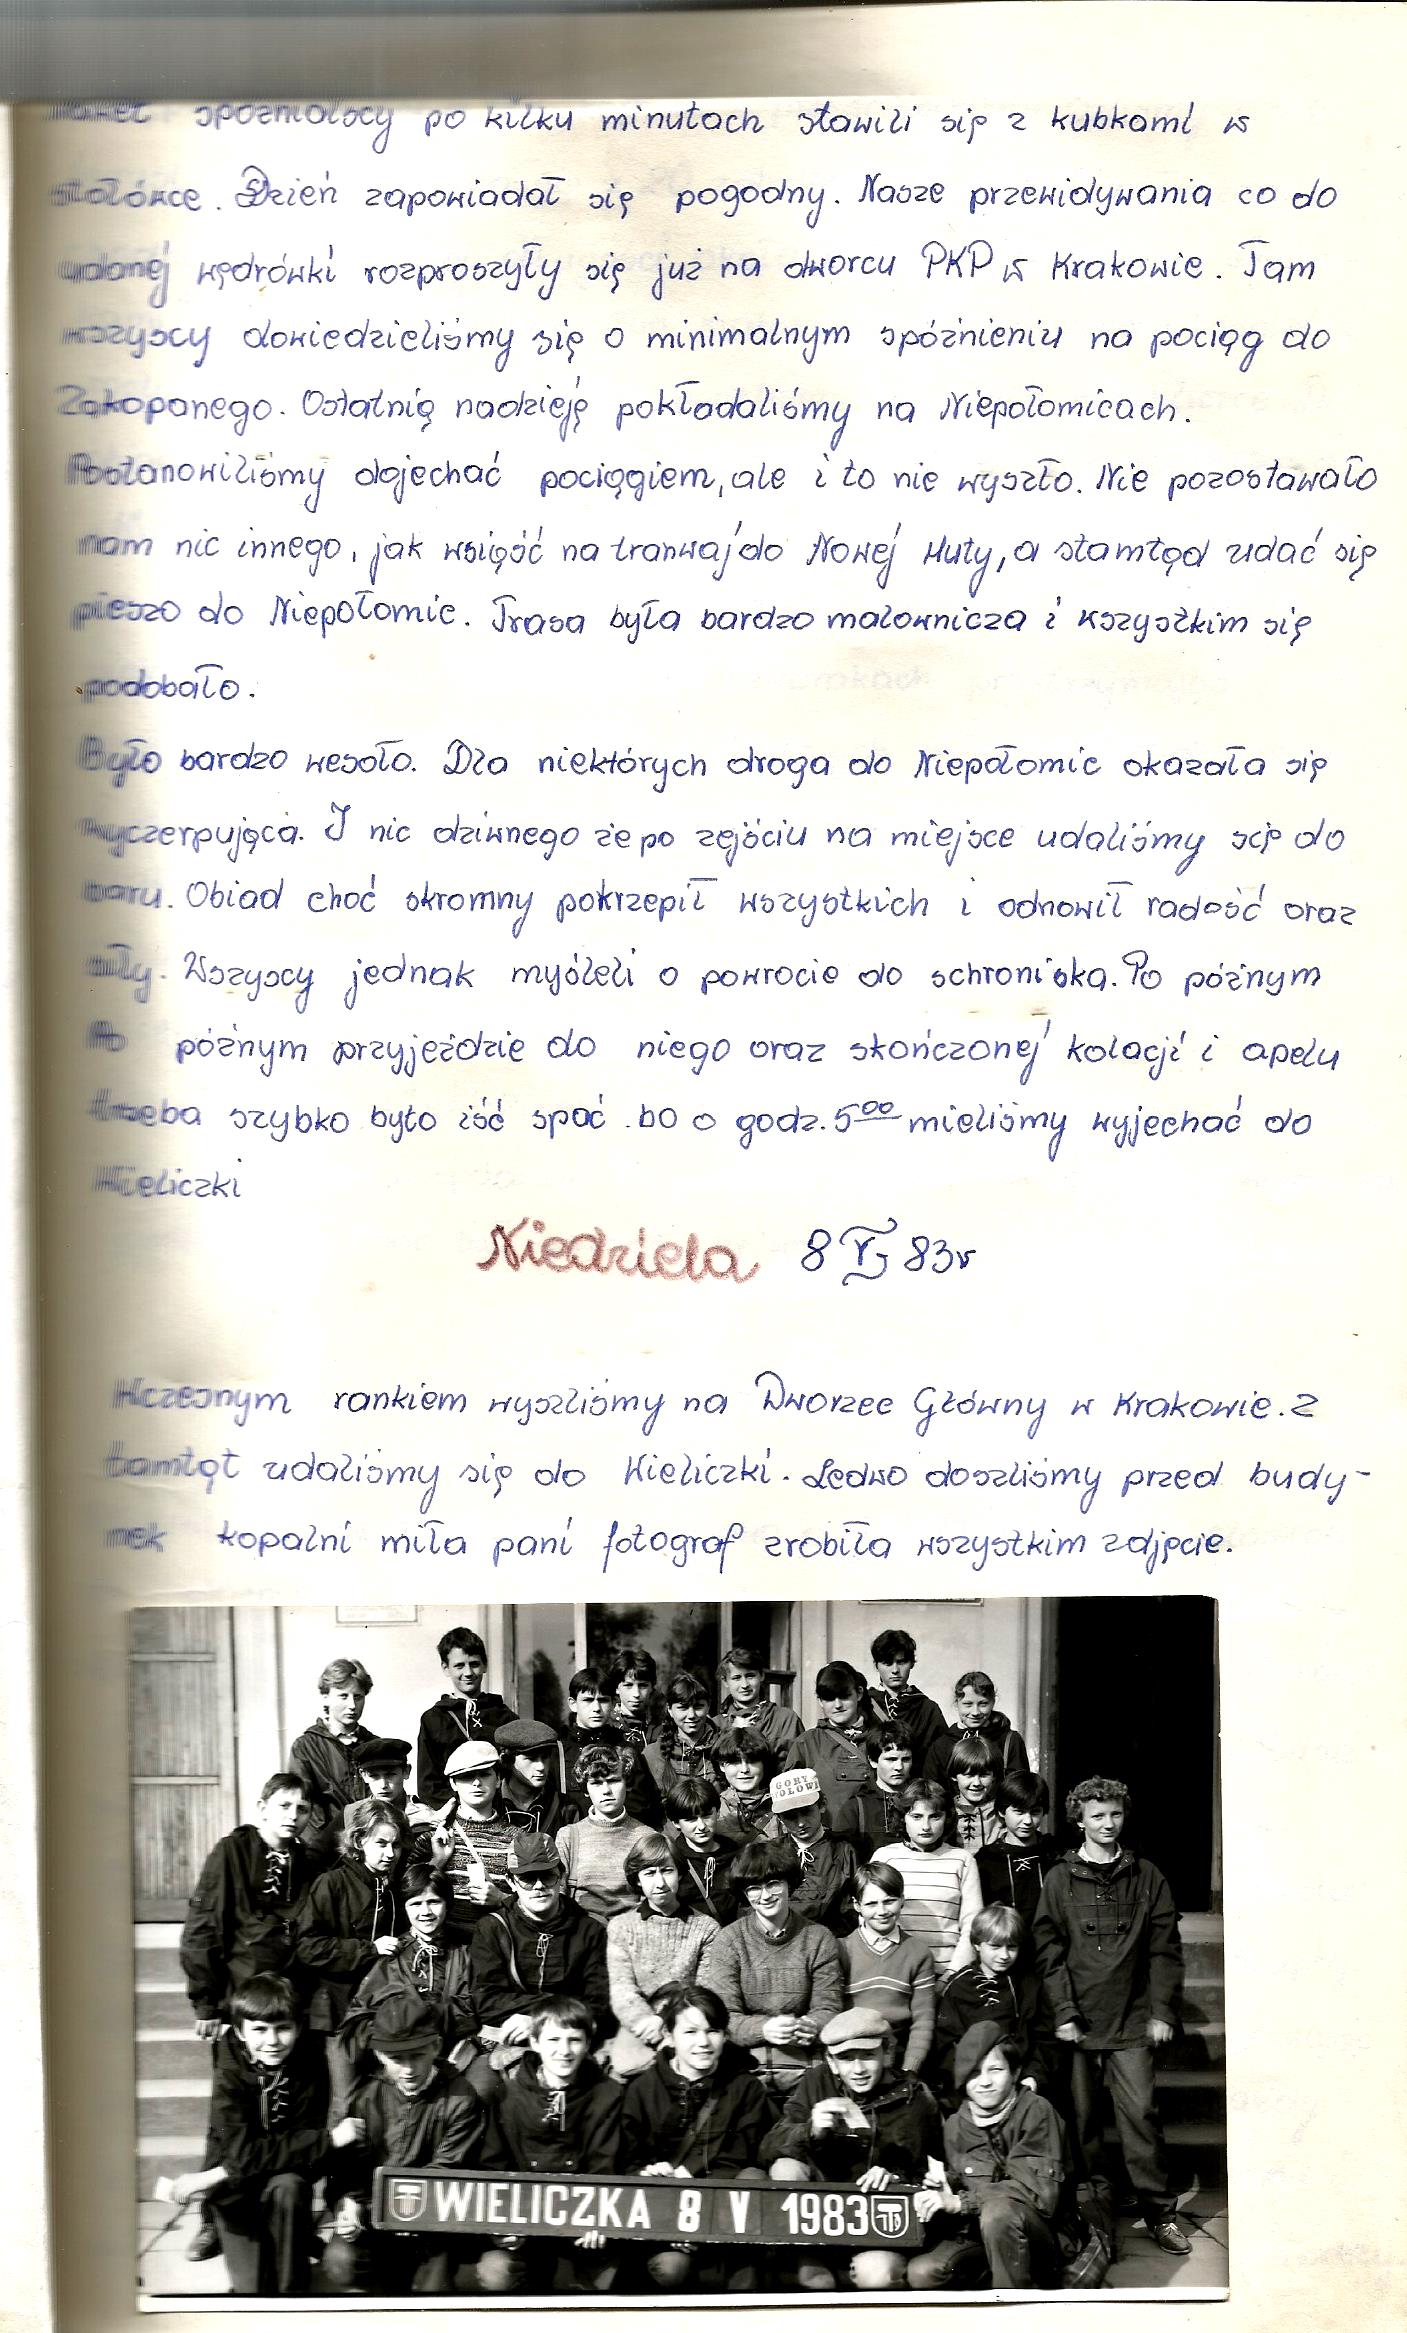 nawet spóźnialscy po kilku minutach stawili się z kubkami w
stołówce. Dzień zapowiadał się pogodny. Nasze przewidywania co do
udanej wędrówki rozproszyły się już na dworcu PKP w Krakowie. Tam
wszyscy dowiedzieliśmy się o minimalnym spóźnieniu na pociąg do
Zakopanego. Ostatnią nadzieję pokładaliśmy na Niepołomicach.
Postanowiliśmy dojechać pociągiem, ale i to nie wyszło. Nie pozostawało
nam nic innego, jak wsiąść na tranwaj do Nowej Huty, a stamtąd udać się
pieszo do Niepołomic. Trasa była bardzo malownicza i wszystkim się
podobało.
Było bardzo wesoło. Dla niektórych droga do Niepołomic okazała się
wyczerpująca. I nic dziwnego że po zejściu na miejsce udaliśmy się do
baru. Obiad choć skromny pokrzepił wszystkich i odnowił radość oraz
siły. Wszyscy jednak myśleli o powrocie do schroniska. Po późnym
Po późnym przyjeździe do niego oraz skończonej kolacji i apelu
trzeba szybko było iść spać bo o godz. 5⁰⁰ mieliśmy wyjechać do
Wieliczki
Niedziela 8 V 83r
Wczesnym rankiem wyszliśmy na Dworzec Główny w Krakowie. Z
tamtąt udaliśmy się do Wieliczki. Ledwo doszliśmy przed budy-
nek kopalni miła pani fotograf zrobiła wszystkim zdjęcie.
GÓRY
WIELICZKA 8 V 1983